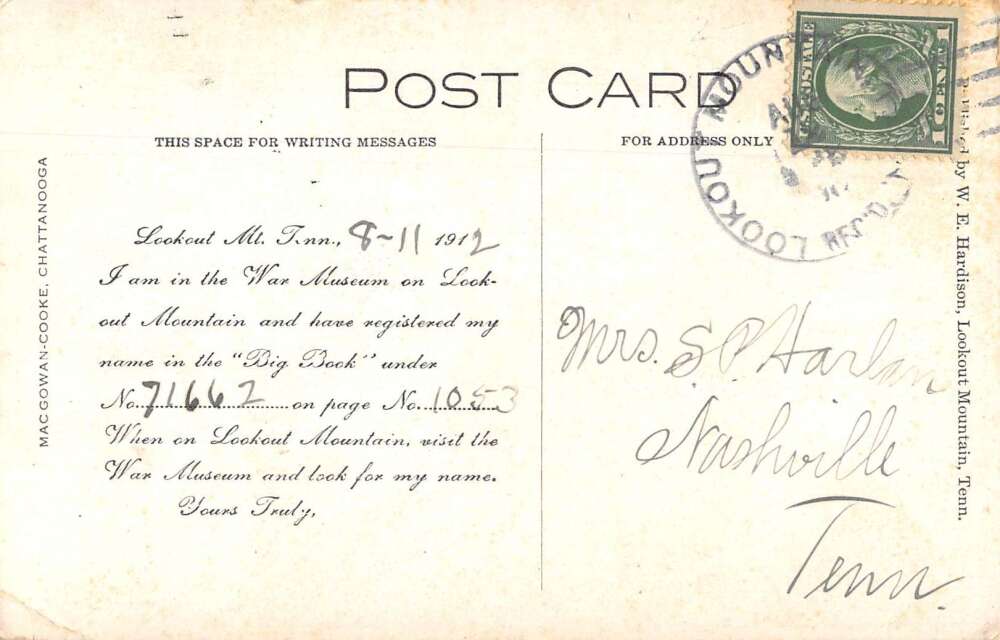 POST CARD
THIS SPACE FOR WRITING MESSAGES
FOR ADDRESS ONLY
MACGOWAN-COOKE, CHATTANOOGA
Lookout Mt. Tenn., 8-11 1912
I am in the War Museum on Look-
out Mountain and have registered my
name in the "Big Book" under
No. 71662 on page No. 1053
When on Lookout Mountain, visit the
War Museum and look for my name.
Yours Truly,
LOOKOUT MOUNTAIN
REC'D
U.S. POSTAGE
1 CENT 1
Mrs. S. P. Harlan
Nashville
Tenn.
Published by W. E. Hardison, Lookout Mountain, Tenn.